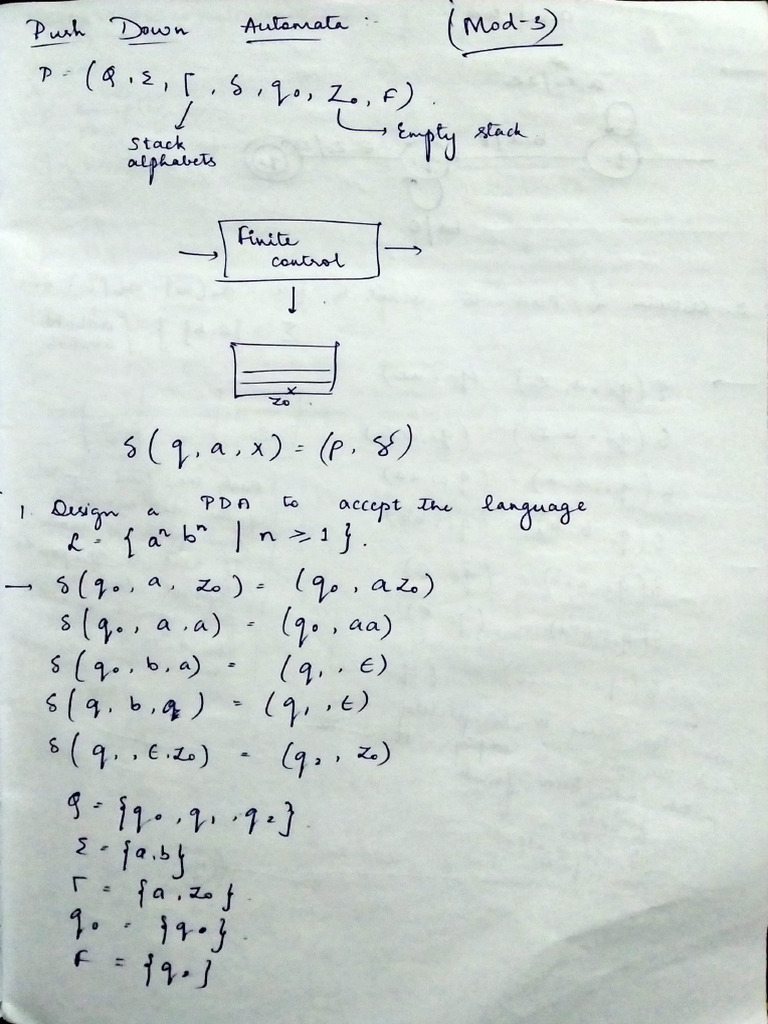 Push Down Automata :- (Mod-3)
P = (Q, Σ, Γ, δ, q₀, Z₀, F).
Stack alphabets
Empty stack
Finite control
Z₀
δ(q, a, x) = (p, γ)
1. Design a PDA to accept the language
L = { aⁿ bⁿ | n ≥ 1 }.
→ δ(q₀, a, z₀) = (q₀, az₀)
δ(q₀, a, a) = (q₀, aa)
δ(q₀, b, a) = (q₁, ϵ)
δ(q, b, a) = (q₁, ϵ)
δ(q₁, ϵ, z₀) = (q₂, z₀)
Q = {q₀, q₁, q₂}
Σ = {a, b}
Γ = {a, z₀}.
q₀ = {q₀}.
F = {q₀}